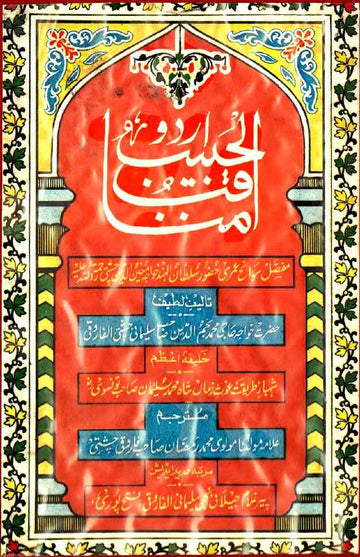 مناقب الحبیب اردو
مفصل سوانح عمری حضور سلطان الہند خواجہ معین الدین چشتی رحمۃ اللہ علیہ
تالیف لطیف
حضرت خواجہ حاجی محمد نجم الدین صاحب سلیمانی چشتی الفاروقی
خلیفہ اعظم
شہباز طریقت غوث زماں شاہ محمد سلیمان صاحب تونسوی
مترجم
علامہ مولانا مولوی محمد رمضان صاحب فاروقی چشتی
مرتبہ جدید ایڈیشن
پیر غلام جیلانی سلیمانی الفاروقی فتح پوری